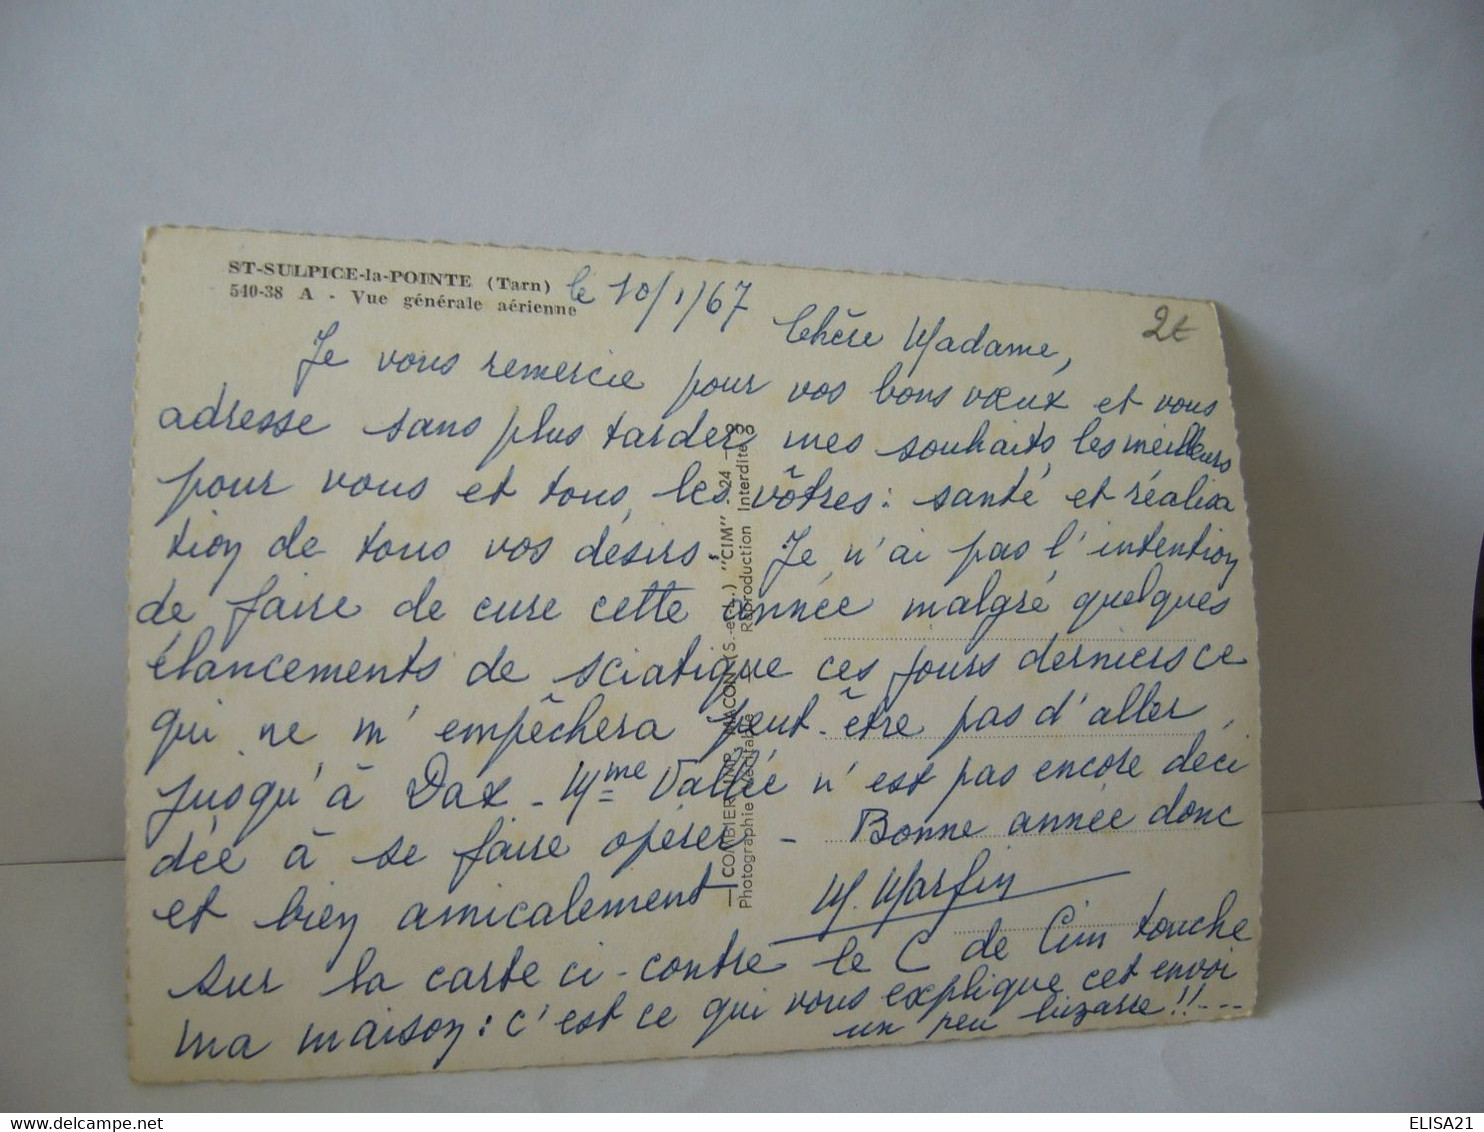 ST-SULPICE-la-POINTE (Tarn)
540-38 A - Vue générale aérienne
le 10/1/67
2€
Chère Madame,
Je vous remercie pour vos bons vœux et vous
adresse sans plus tarder mes souhaits les meilleurs
pour vous et tous les vôtres : santé et réalisa
tion de tous vos désirs - Je n'ai pas l'intention
de faire de cure cette année malgré quelques
élancements de sciatique ces jours derniers ce
qui ne m'empêchera peut-être pas d'aller
jusqu'à Dax - Mme Vallée n'est pas encore déci
dée à se faire opérer - Bonne année donc
et bien amicalement M. Marfin
Sur la carte ci-contre le C de Cim touche
ma maison : c'est ce qui vous explique cet envoi
un peu bizarre !! ---
COMBIER IMP. MACON (S.-et-L.) "CIM"
Photographie véritable Reproduction Interdite
ELISA21